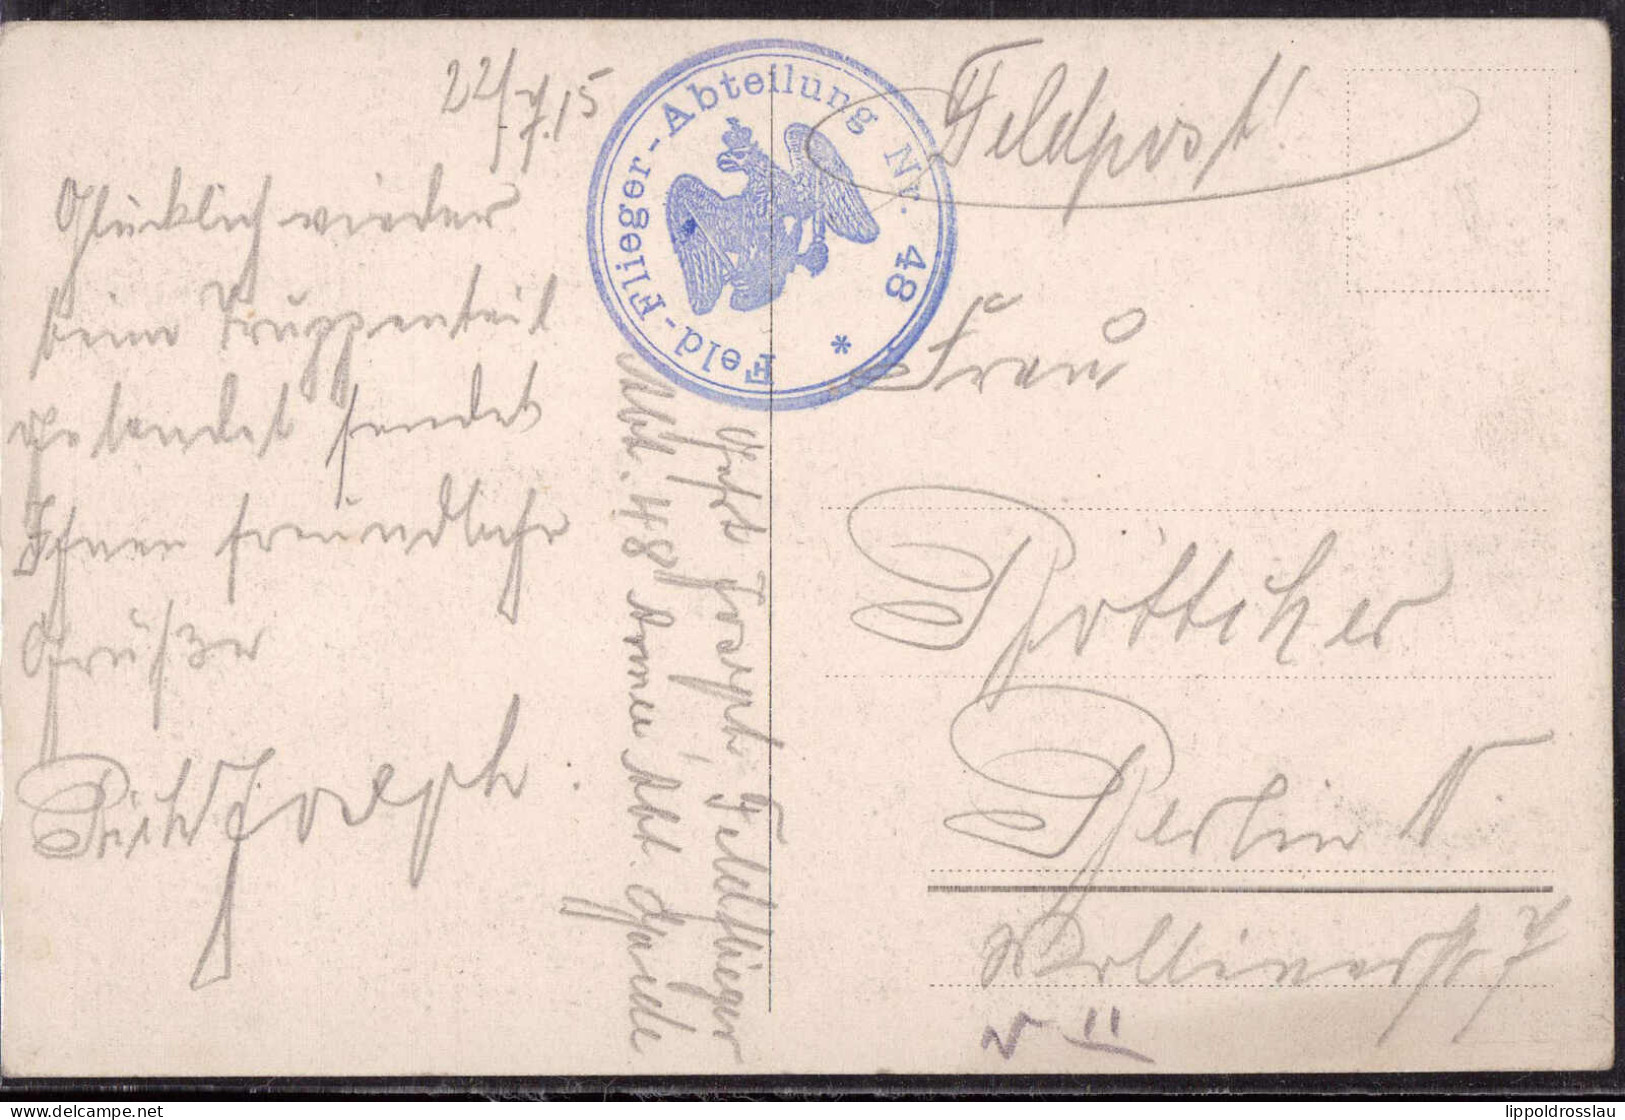 22/7.15
Glücklich wieder
beim Truppenteil
gelandet sendet
Ihnen freundliche
Grüsze
Joseph.
Feld-Flieger-Abteilung Nr. 48 *
Gefr. Joseph, Feldflieger
Abt. 48 Armee Abt. Gaede
Feldpost!
Frau
Böttcher
Berlin N.
Wollinerst. 7
II
delcampe.net
lippoldrosslau